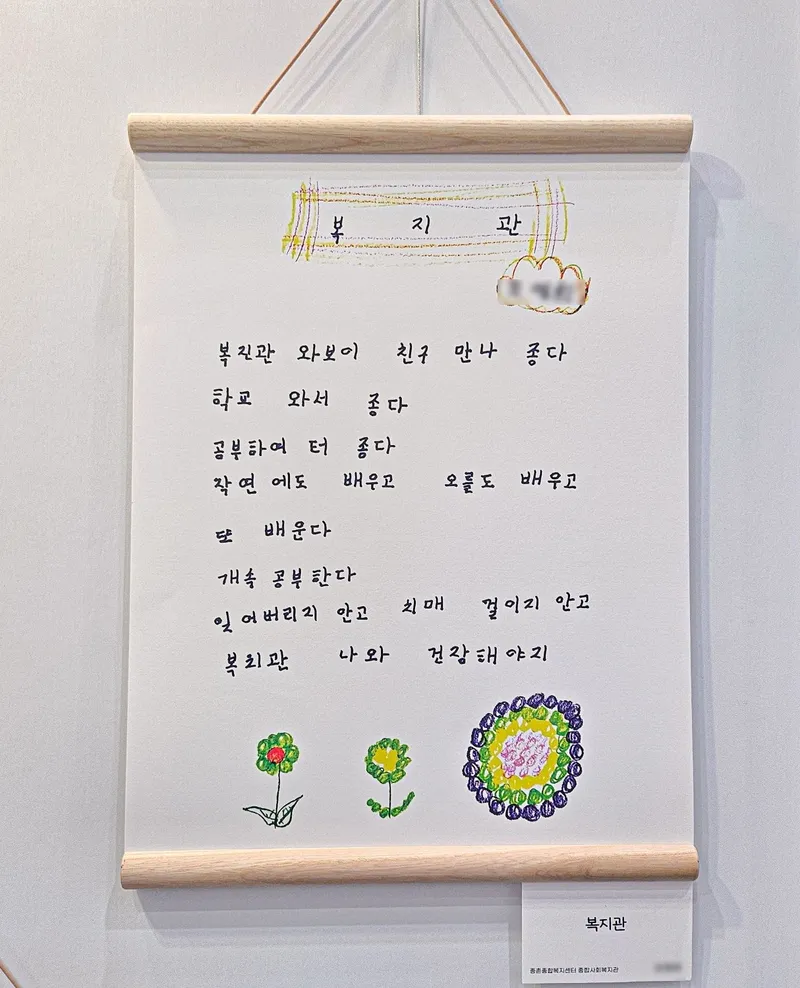 복 지 관
복진관 와보이 친구 만나 좋다
학교 와서 좋다
공부하여 터 좋다
작연에도 배우고 오를도 배우고
또 배운다
개속 공부한다
잊어버리지 안고 치매 걸이지 안고
복지관 나와 건장해야지
복지관
종촌종합복지센터 종합사회복지관